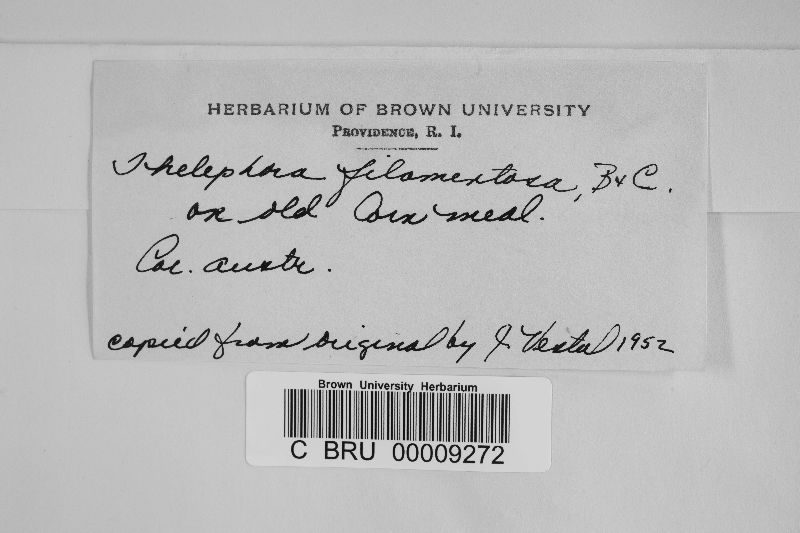 HERBARIUM OF BROWN UNIVERSITY
PROVIDENCE, R. I.
Thelephora filamentosa, B & C.
on old Corn meal.
Car. austr.
copied from original by J. Vestal 1952
Brown University Herbarium
C BRU 00009272